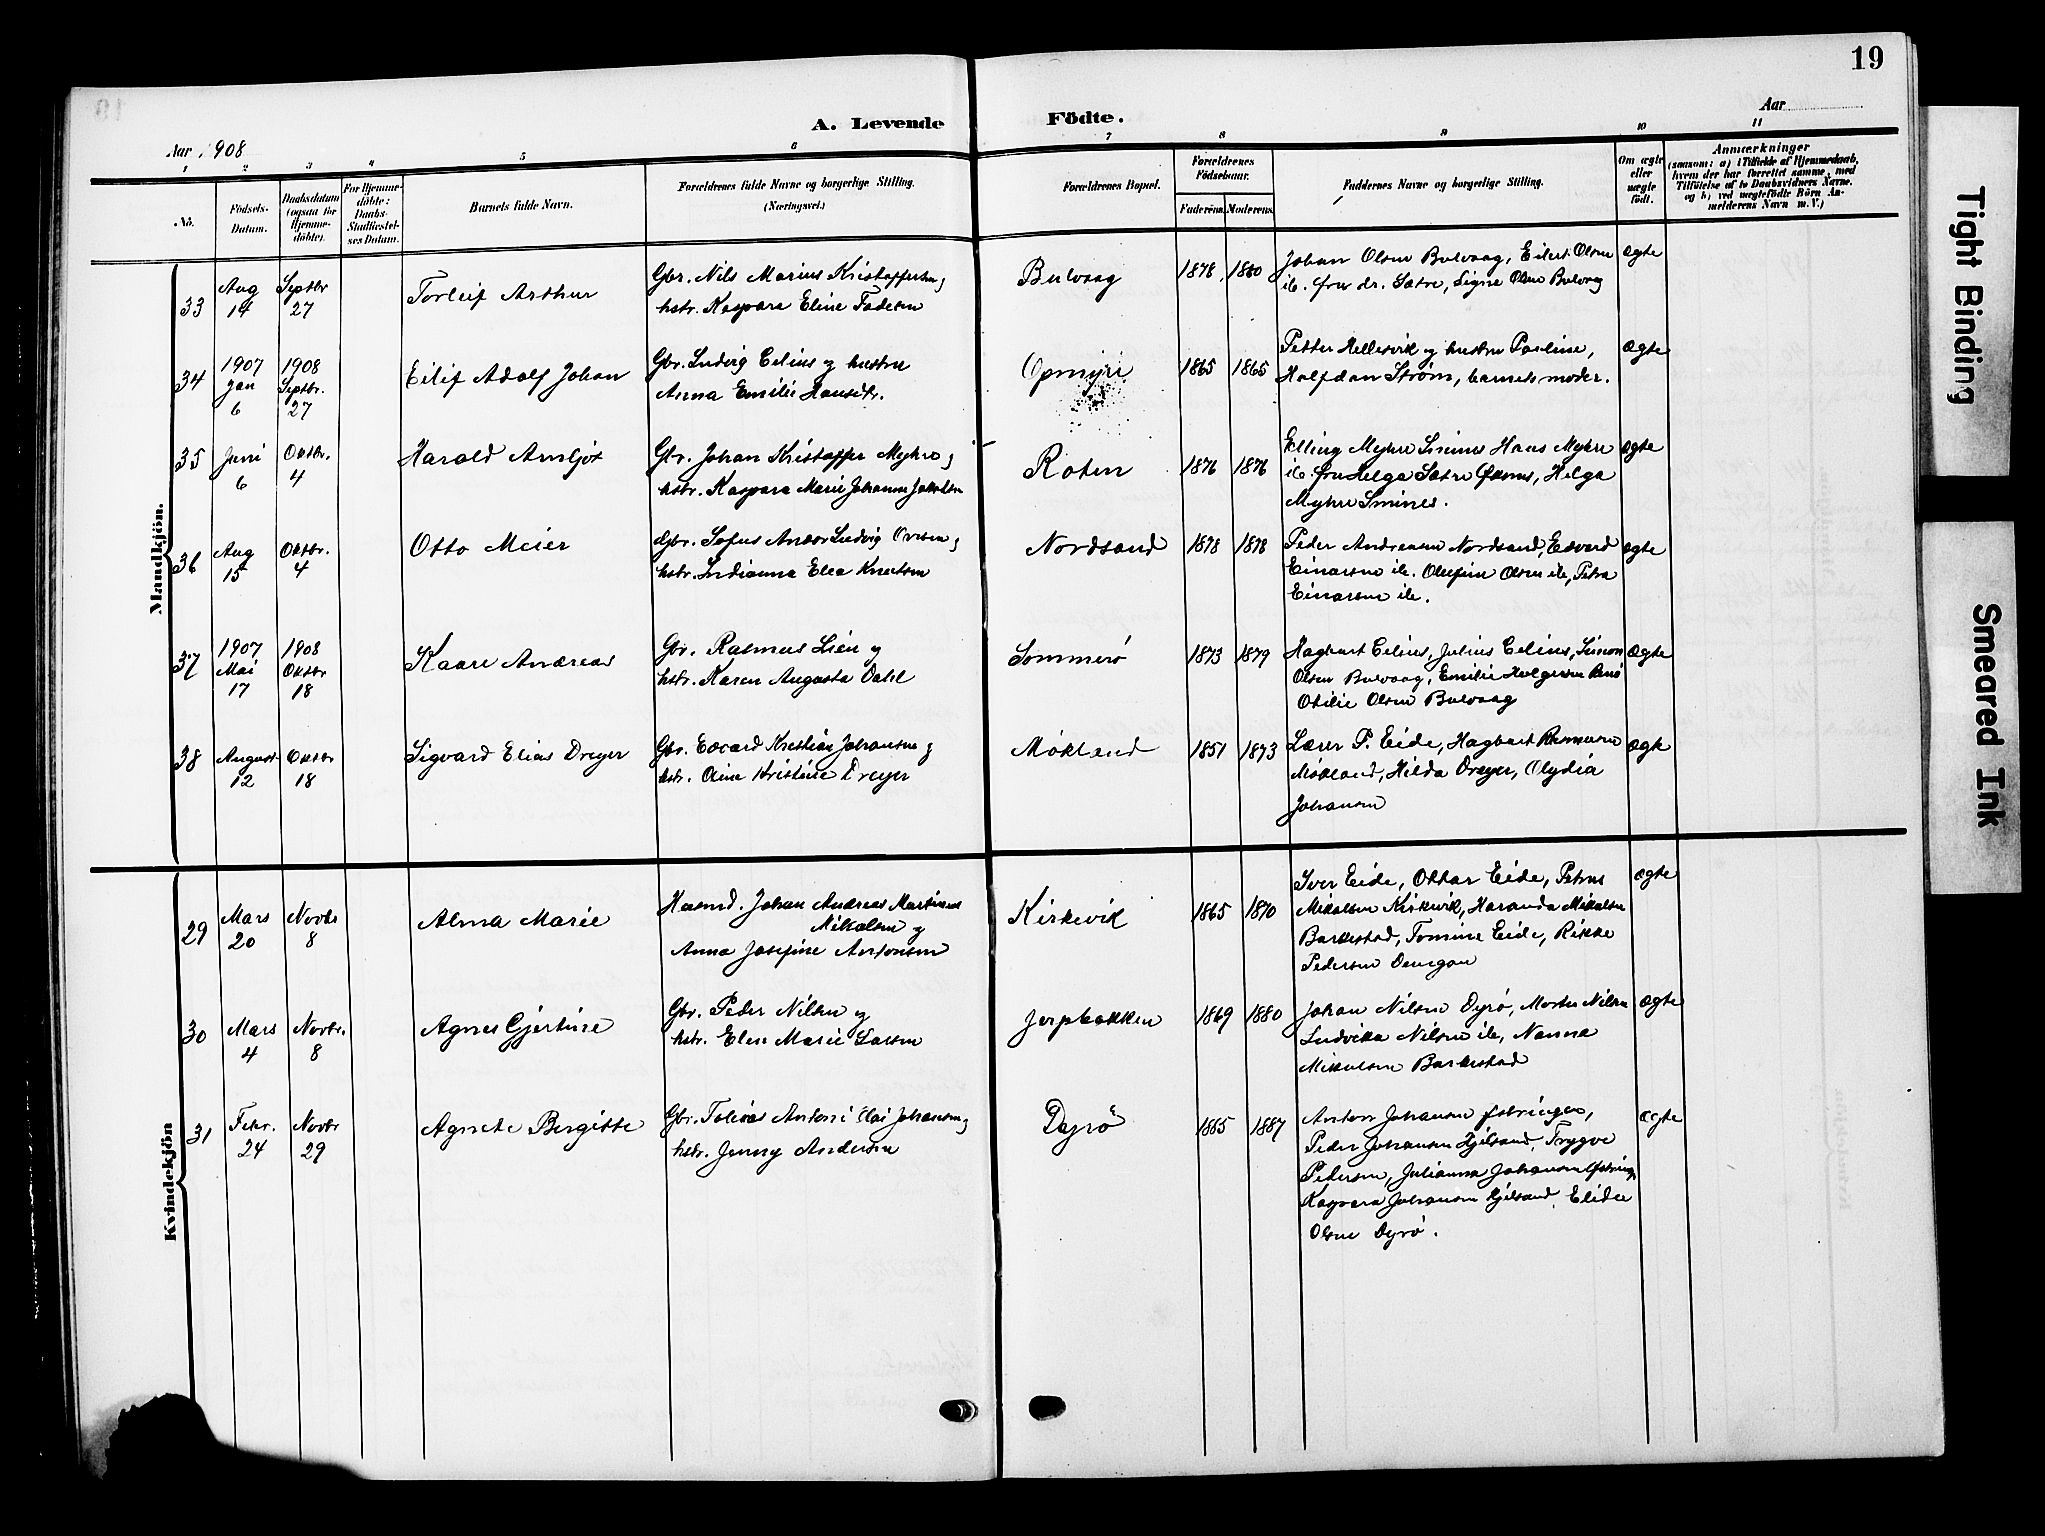 19
A. Levende Födte.
Aar 1908
Aar
1 2 3 4 5 6 7 8 9 10 11
No.
Födsels-Datum.
Daabsdatum (ogsaa for Hjemmedöbte).
For Hjemmedöbte: Daabs-Stadfæstelses Datum.
Barnets fulde Navn.
Forældrenes fulde Navne og borgerlige Stilling. (Næringsvei.)
Forældrenes Bopæl.
Forældrenes Födselsaar.
Faderens. Moderens.
Faddernes Navne og borgerlige Stilling.
Om ægte eller uægte födt.
Anmærkninger
(saasom: a) i Tilfælde af Hjemmedaab, hvem der har forrettet samme, med Tilföielse af to Daabsvidners Navne, og b) ved uægtefödte Börn Anmelderens Navn m. V.)
Mandkjön.
33 Aug 14 Septbr 27 Torleif Arthur
Gbr. Nils Marius Kristoffersen og
hstr. Kaspara Eline
Bulvaag 1878 1880
Johan Olsen Bulvaag, Eilert Olsen
ib. fru dr. Sætre, Signe Olsen Bulvaag
ægte
34 1907 Jan 6 1908 Septbr. 27 Eilif Adolf Johan
Gbr. Ludvig Celius og hustru
Anna Emilie Hansdtr.
Opmyre 1865 1865
Petter Hellesvik og hustru Pauline,
Halfdan Strøm, barnets moder.
ægte
35 Juni 6 Oktbr. 4 Harald Arnljot
Gbr. Johan Kristoffer Myhre og
hstr. Kaspara Marie Johanna Jakobsen
Roten 1876 1876
Elling Myhre Smines Hans Myhre
ib. fru Helga Sætre Helga
Myhre Smines.
ægte
36 Aug 15 Oktbr. 4 Otto Meier
Gbr. Sofus Ludvig
hstr. Indianna Elea Knutsen
Nordsand 1878 1878
Peder Andreasen Nordsand, Edvard
Einarsen ib. Olufine Olsen ib, Petra
Einarsen ib.
ægte
37 1907 Mai 17 1908 Oktbr 18 Kaare Andreas
Gbr. Rasmus Lien og
hstr. Karen Augusta Dahl
Sommerø 1873 1879
Hagbart Celius, Julius Celius, Simon
Olsen Bulvaag, Emilie Holgersen
Otilie Olsen Bulvaag
ægte
38 August 12 Oktbr 18 Sigvard Elias Dreyer
Gbr. Edvard Kristian Johansen og
hstr. Oline Kristine Dreyer
Møkland 1851 1873
Lærer P. Eide, Hagbart Rasmussen
Møkland, Hilda Dreyer, Olydia
Johansen
ægte
Kvindekjön
29 Mars 20 Novbr 8 Alma Marie
Husmd. Johan Andreas Martinus
Mikalsen og
Anna Josefine Antonsen
Kirkevik 1865 1870
Iver Eide, Ottar Eide, Petrus
Mikalsen Kirkvik, Haranda Mikalsen
Barkestad, Tomine Eide, Rikke
Pedersen
ægte
30 Mars 4 Novbr. 8 Agnes Gjertine
Gbr. Peder Nilsen og
hstr. Elen Marie Larsen
Jerpbakken 1869 1880
Johan Nilsen Dyrø, Morten Nilsen
Ludvikka Nilsen ib, Nanna
Mikalsen Barkestad
ægte
31 Febr. 24 Novbr 29 Agnete Birgitte
Gbr. Tobias Antoni Johansen og
hstr. Jenny Andersen
Dyrø 1865 1887
Anton Johansen
Peder Johansen Gjelsand, Trygve
Pedersen, Julianna Johansen
Kaspara Johansen Gjelsand, Elidee
Olsen Dyrø.
ægte
Tight Binding
Smeared Ink